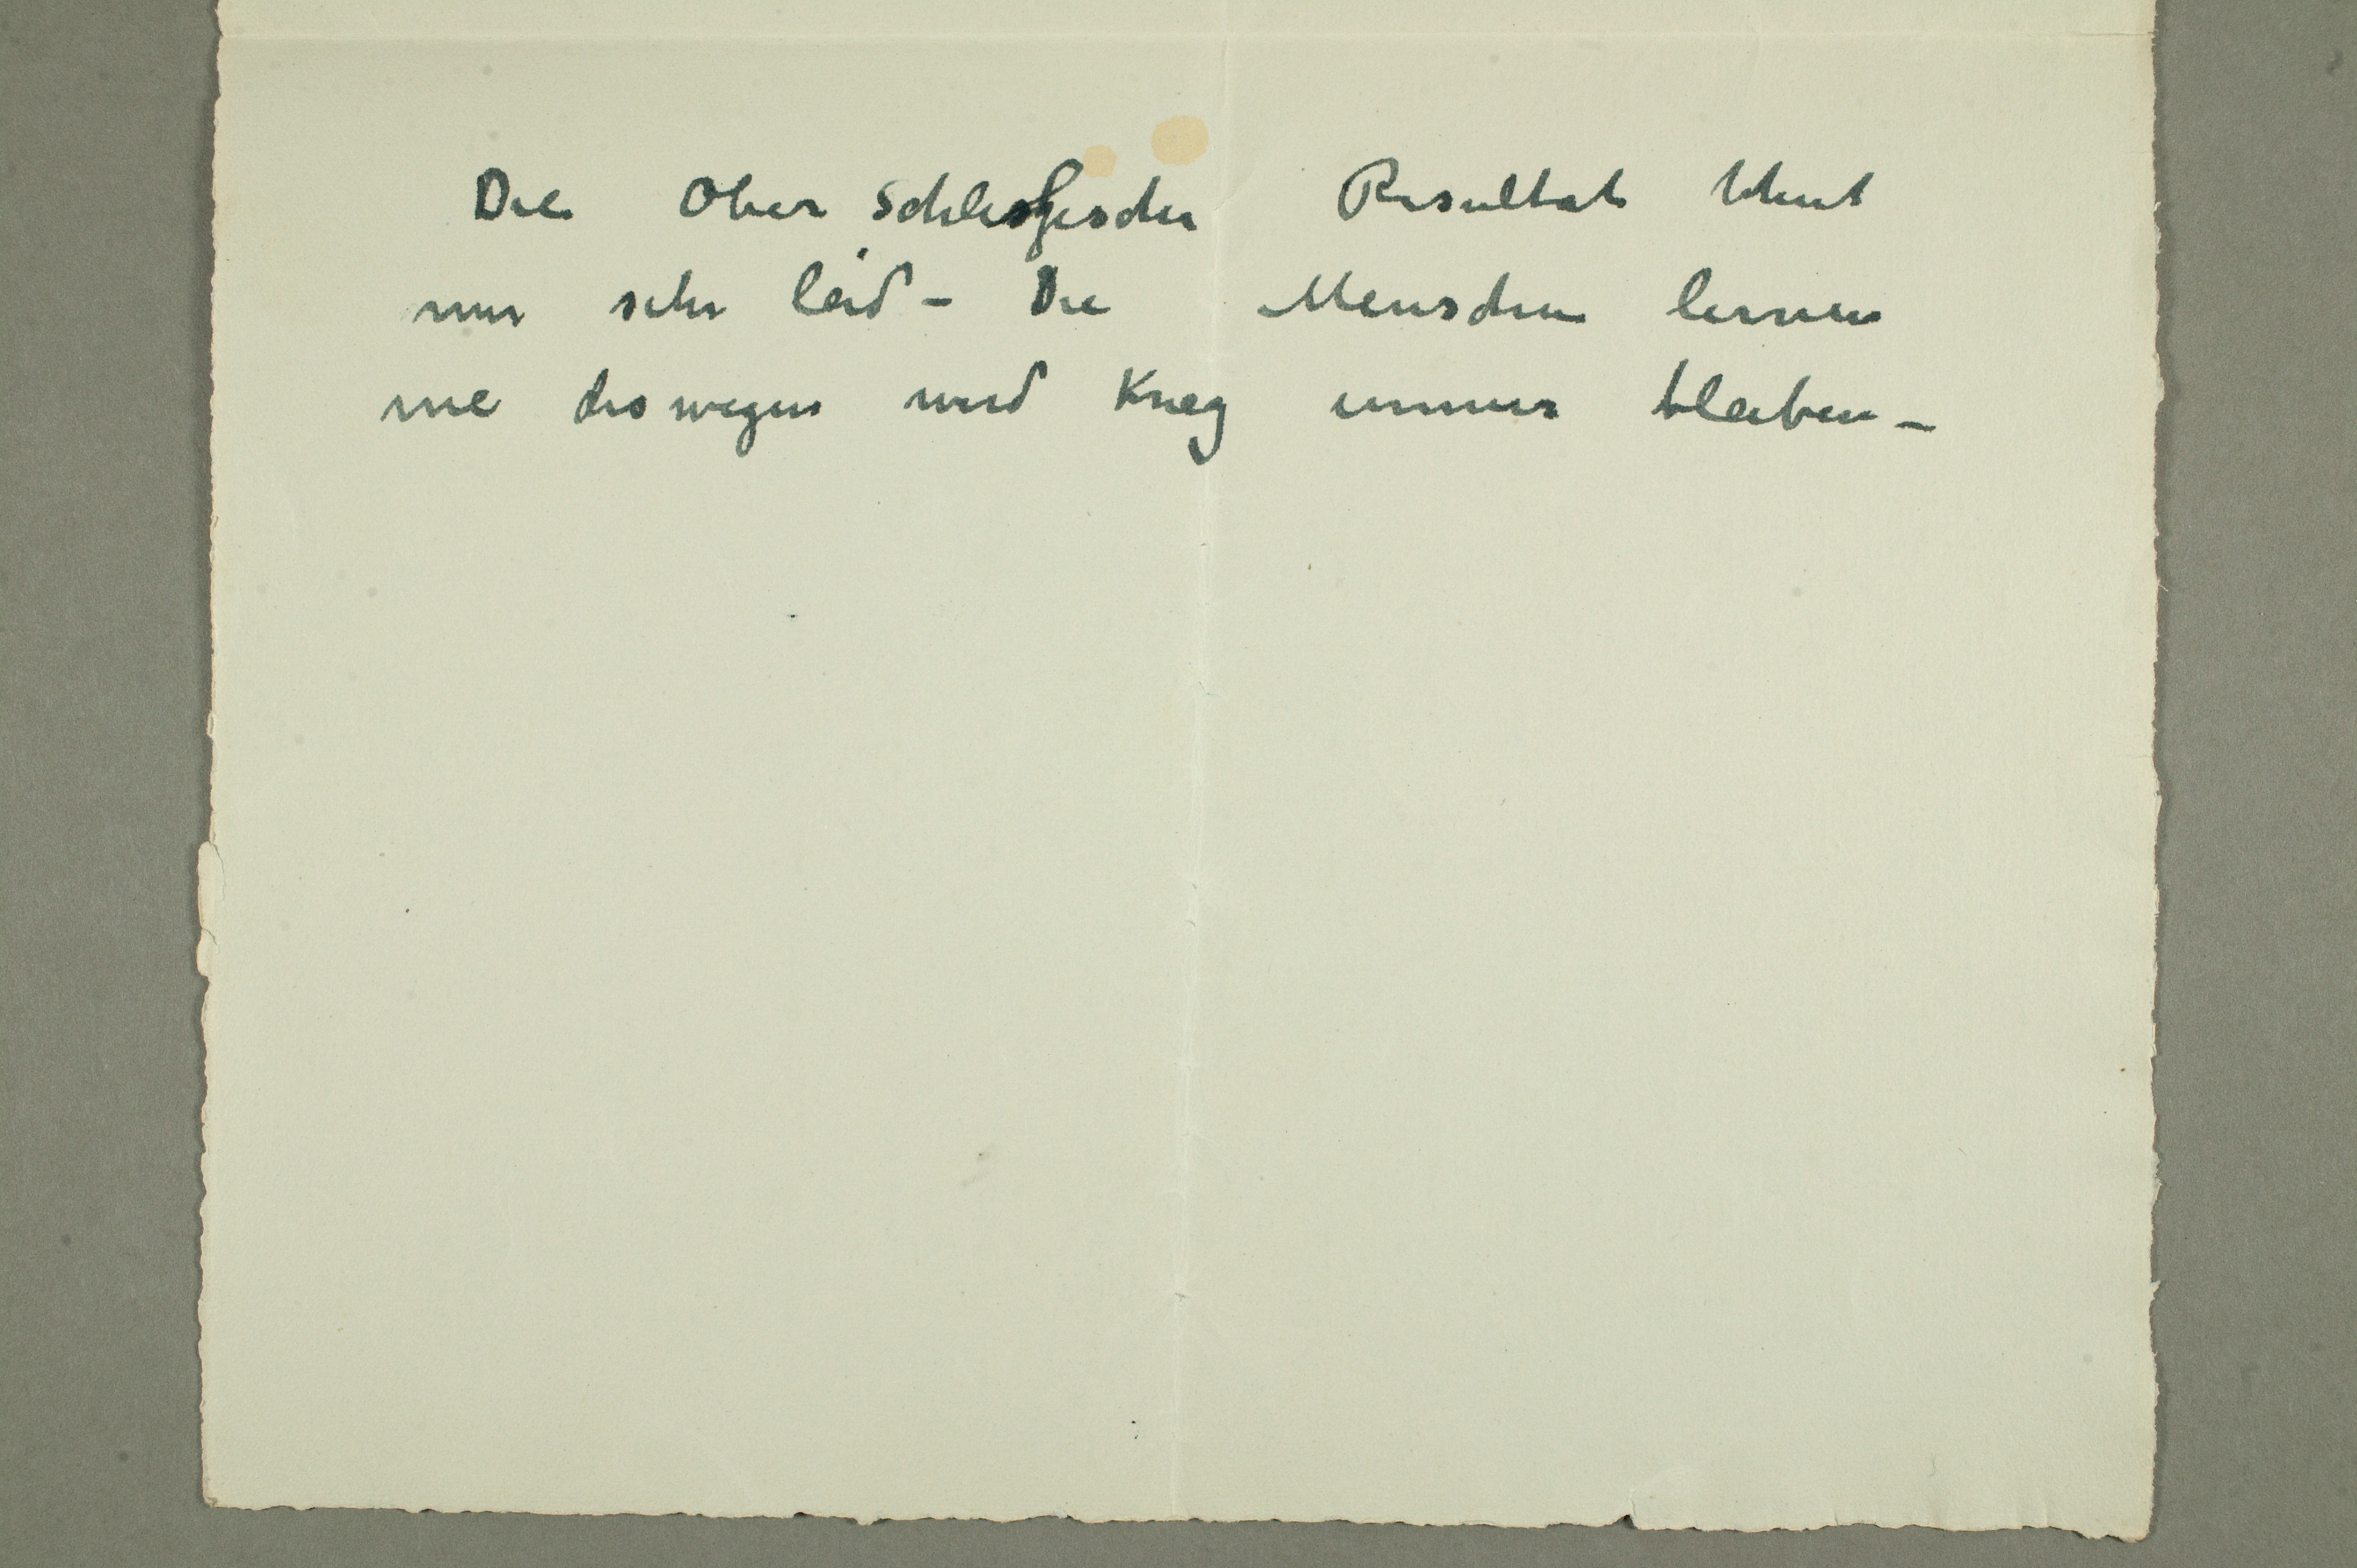 Die Ober Schlesischen Resultate thut
mir sehr leid – Die Menschen lernen
nie deswegen wird Krieg immer bleiben –